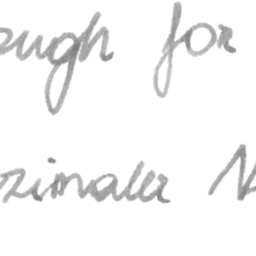 ough for
zimaler N